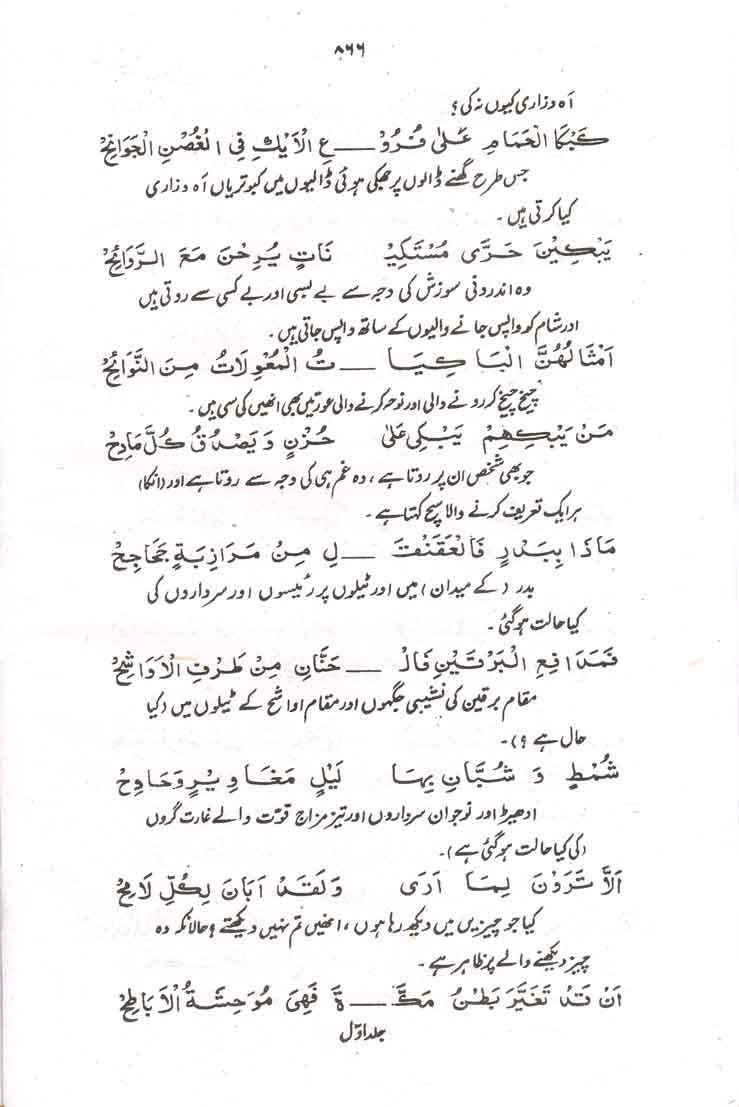 ۸۶۶
آہ وزاری کیوں نہ کی؟
كَبُكَا الْحَمَامِ عَلٰى فُرُوْ ــــ عِ الْاَيْكِ فِي الْغُصْنِ الْجَوَانِحْ
جس طرح گھنے ڈالوں پر جھکی ہوئی ڈالیوں میں کبوتریاں آہ وزاری
کیا کرتی ہیں۔
يَبْكِيْنَ حَرّٰى مُسْتَكِيْـ نَاتٍ يُرِحْنَ مَعَ الرَّوَائِحْ
وہ اندرونی سوزش کی وجہ سے بے بسی اور بے کسی سے روتی ہیں
اور شام کو واپس جانے والیوں کے ساتھ واپس جاتی ہیں۔
اَمْثَالُهُنَّ الْبَاكِيَا ــــ تُ الْمُعْوِلَاتُ مِنَ النَّوَائِحْ
چیخ چیخ کر رونے والی اور نوحہ کرنے والی عورتیں بھی انھیں کی سی ہیں۔
مَنْ يَبْكِهِمْ يَبْكِى عَلٰى حُزْنٍ وَيَصْدُقُ كُلَّ مَادِحْ
جو بھی شخص ان پر روتا ہے، وہ غم ہی کی وجہ سے روتا ہے اور (انکا)
ہر ایک تعریف کرنے والا سچ کہتا ہے۔
مَاذَا بِبَدْرٍ فَالْعَقَنْقَـ ــــ لِ مِنْ مَرَازِبَةٍ جَحَاجِحْ
بدر (کے میدان) میں اور ٹیلوں پر رئیسوں اور سرداروں کی
کیا حالت ہوگئی۔
فَمَدَافِعِ الْبَرْقَيْنِ فَالْـ ــــ حَنَّانِ مِنْ طَرَفِ الْاَوَاشِحْ
مقام برقین کی نشیبی جگہوں اور مقام اواشح کے ٹیلوں میں (کیا
حال ہے؟)۔
شُمْطٍ وَ شُبَّانٍ بِهَا لَيْلٍ مَغَاوِيْرٍ وَحَاوِحْ
ادھیڑ اور نوجوان سرداروں اور تیز مزاج قوّت والے غارت گروں
(کی کیا حالت ہوگئی ہے)۔
اَلَّا تَرَوْنَ لِمَا اَرٰى وَلَقَدْ اَبَانَ لِكُلِّ لَامِحْ
کیا جو چیزیں میں دیکھ رہا ہوں، انھیں تم نہیں دیکھتے؟ حالانکہ وہ
چیز دیکھنے والے پر ظاہر ہے۔
اَنْ قَدْ تَغَيَّرَ بَطْنُ مَكَّـ ــــ ةَ فَهِىَ مُوْحِشَةُ الْاَبَاطِحْ
جلد اوّل